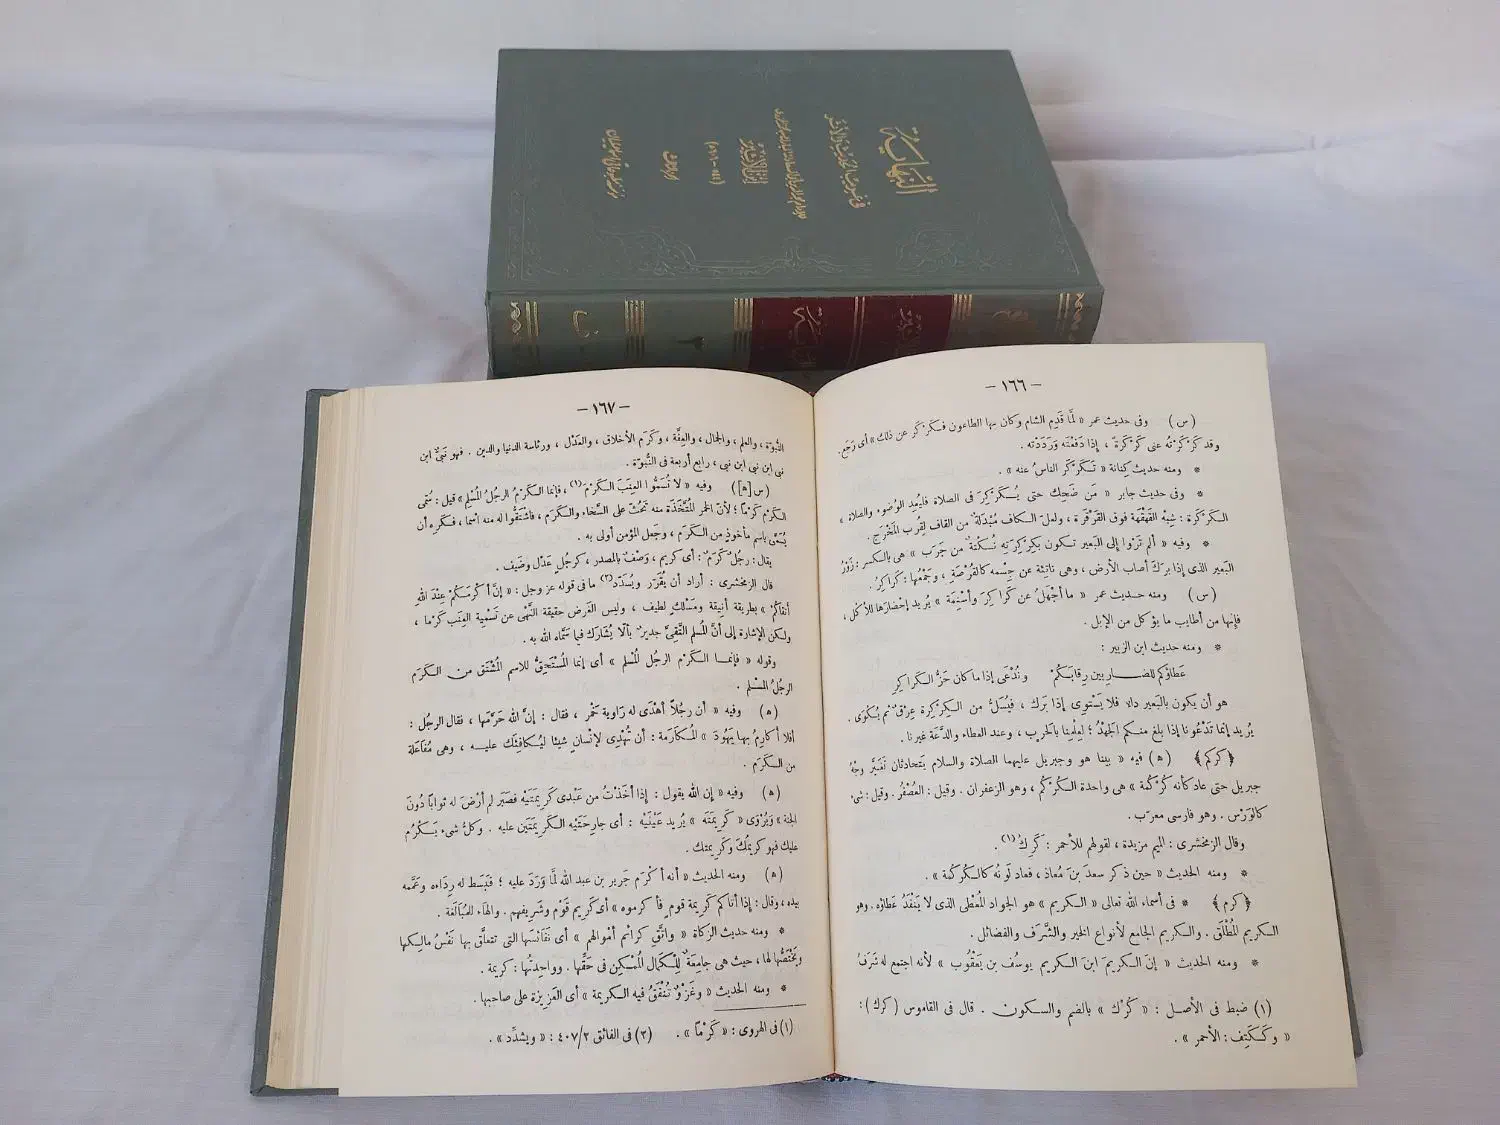 النهاية
في غريب الحديث والأثر
ابن الأثير
(٥٤٤ - ٦٠٦ هـ)
النهاية
٣
– ١٦٦ –
(س) وفى حديث عمر « لَمَّا قَدِم الشام وكان بها الطاعون فَكَرْكَر عن ذلك » أى رَجَع.
وقد كَرْكَرْتُه عنى كَرْكَرةً ، إذا دَفَعْتَه وَرَدَدْته .
* ومنه حديث كِنانة « تَكَرْكَر الناسُ عنه » .
* وفى حديث جابر « مَن ضَحِك حتى يُكَرْكِرَ فى الصلاة فليُعِد الوُضوء والصلاة »
الكَرْكَرة : شِبْه القَهْقَهة فوق القَرْقَرة ، ولعل الكاف مُبْدَلة من القاف لِقُرب المَخْرَج .
* وفيه « ألم تَرَوْا إلى البَعير تكون بكِرْكِرَتِه نُكْتة من جَرَب » هى بالكسر : زَوْرُ
البَعير الذى إذا بَرَك أصاب الأرض ، وهى ناتِئة عن جِسْمه كالقُرْصَةِ ، وجَمْعُها : كَراكِرُ .
(س) ومنه حديث عمر « ما أَجْهَلُ عن كَراكِرَ وأسْنِمَة » يُريد إحْضارَها للأكْل ،
فإنها من أطايب ما يُؤكل من الإبل .
* ومنه حديث ابن الزبير :
عَطاؤُكم للضاربين رِقابَكُمْ ونُدْعَى إذا ما كان حَزُّ الكَراكِرِ
هو أن يكون بالبَعير داء فلا يَسْتَوِى إذا بَرَك ، فيُسَلُّ من الكِرْكِرة عِرْقٌ ثم يُكْوَى .
يُريد إنما تَدْعُونا إذا بلغ منكم الجَهْدُ ؛ لِعِلْمِنا بالحَرْب ، وعند العطاء والدَّعَة غيرنا .
﴿ كركم ﴾ (ه) فيه « بينا هو وجبريل عليهما الصلاة والسلام يَتحادثان تَغَيَّر وجْهُ
جبريل حتى عاد كأنه كُرْكُمة » هى واحدة الكُرْكُم ، وهو الزعفران . وقيل : العُصْفُر . وقيل : شىء
كالوَرْس . وهو فارسى معرّب .
وقال الزمخشرى : الميم مزيدة ، لقولهم للأحمر : كَرِكٌ (١) .
* ومنه الحديث « حين ذكر سعدَ بنَ مُعاذ ، فعاد لَونُه كالكُرْكُمة » .
﴿ كرم ﴾ * فى أسماء الله تعالى « الكريم » هو الجواد المُعْطِى الذى لا يَنْفَدُ عَطاؤه . وهو
الكريم المُطْلَق . والكريم الجامع لأنواع الخير والشَّرَف والفضائل .
* ومنه الحديث « إنّ الكريمَ ابنَ الكريم يوسُف بن يَعْقُوب » لأنه اجتمع له شَرَفُ
(١) ضبط فى الأصل : « كُرْك » بالضم والسكون . قال فى القاموس (كرك) :
« وككَتِف : الأحمر » .
– ١٦٧ –
النُّبوّة ، والعلم ، والجمال ، والعِفَّة ، وكَرَم الأخلاق ، والعَدْل ، ورئاسة الدنيا والدين . فهو نَبِىٌّ ابن
نبى ابن نبى ابن نبى ، رابع أربعة فى النُّبوّة .
(س [ه]) وفيه « لا تُسَمُّوا العِنَب الكَرْمَ (١) ، فإنما الكَرْمُ الرجُل المُسْلِم » قيل : سُمّى
الكَرْم كَرْماً ؛ لأنّ الخمر المُتَّخَذَة منه تَحُثّ على السَّخاء والكَرَم ، فاشْتَقُّوا له منه اسماً ، فكَرِه أن
يُسَمَّى باسم مأخوذٍ من الكَرَم ، وجَعل المؤمن أولى به .
يقال : رجُل كَرَم : أى كريم ، وَصْفٌ بالمصدر ، كرجُلٍ عَدْل وضَيف .
قال الزمخشرى : أراد أن يُقَرِّر ويُسَدِّد (٢) ما فى قوله عز وجل : « إنّ أكْرَمَكُمْ عِنْدَ اللهِ
أتقاكُمْ » بطريقة أنِيقة ومَسْلَكٍ لطيف ، وليس الغَرض حقيقة النَّهْى عن تَسْمِية العِنَب كَرْما ،
ولكن الإشارة إلى أنَّ المُسلم التَّقِىَّ جدير بألّا يُشارَك فيما سَمَّاه الله به .
وقوله « فإنما الكَرْم الرجُل المُسْلم » أى إنما المُسْتَحِقُّ للاسم المُشْتَق من الكَرَم
الرجُلُ المسْلم .
(ه) وفيه « أن رجُلاً أهْدَى له راوِية خَمْر ، فقال : إنَّ الله حَرَّمها ، فقال الرجُل :
أفلا أُكارِمُ بها يَهُودَ » المُكارَمة : أن تُهْدِى لإنسانٍ شيئا ليُكافِئك عليه ، وهى مُفاعَلة
من الكَرَم .
(ه) وفيه « إن الله يقول : إذا أخَذْتُ من عَبْدى كَرِيمَتَيْه فصَبَر لم أرْضَ له ثوابًا دُونَ
الجنة » ويُرْوَى « كَرِيمَته » يُريد عَيْنَيْه : أى جارِحَتَيْه الكَرِيمَتَين عليه . وكلُّ شىء يَكْرُم
عليك فهو كريمُك وكَرِيمتك .
(ه) ومنه الحديث « أنه أكْرَم جرير بن عبد الله لمَّا وَرَدَ عليه ؛ فبَسَط له رِداءه وعَمَّمه
بيده ، وقال : إذا أتاكم كَرِيمة قومٍ فأكرموه » أى كَرِيم قَوْمٍ وشَرِيفهم . والهاء للمُبالَغة .
* ومنه حديث الزكاة « واتَّقِ كَرائم أموالهم » أى نَفائسَها التى تتعلَّق بها نَفْسُ مالِكها
ويَخْتَصُّها لها ، حيث هى جامِعة للكَمال المُمْكِن فى حَقِّها . وواحِدتُها : كَرِيمة .
* ومنه الحديث « وغَزْوٌ تُنْفَقُ فيه الكريمة » أى العَزِيزة على صاحِبها .
(١) فى الهروى : « كَرْمًا » . (٢) فى الفائق ٤٠٧/٢ : « ويشدِّد » .